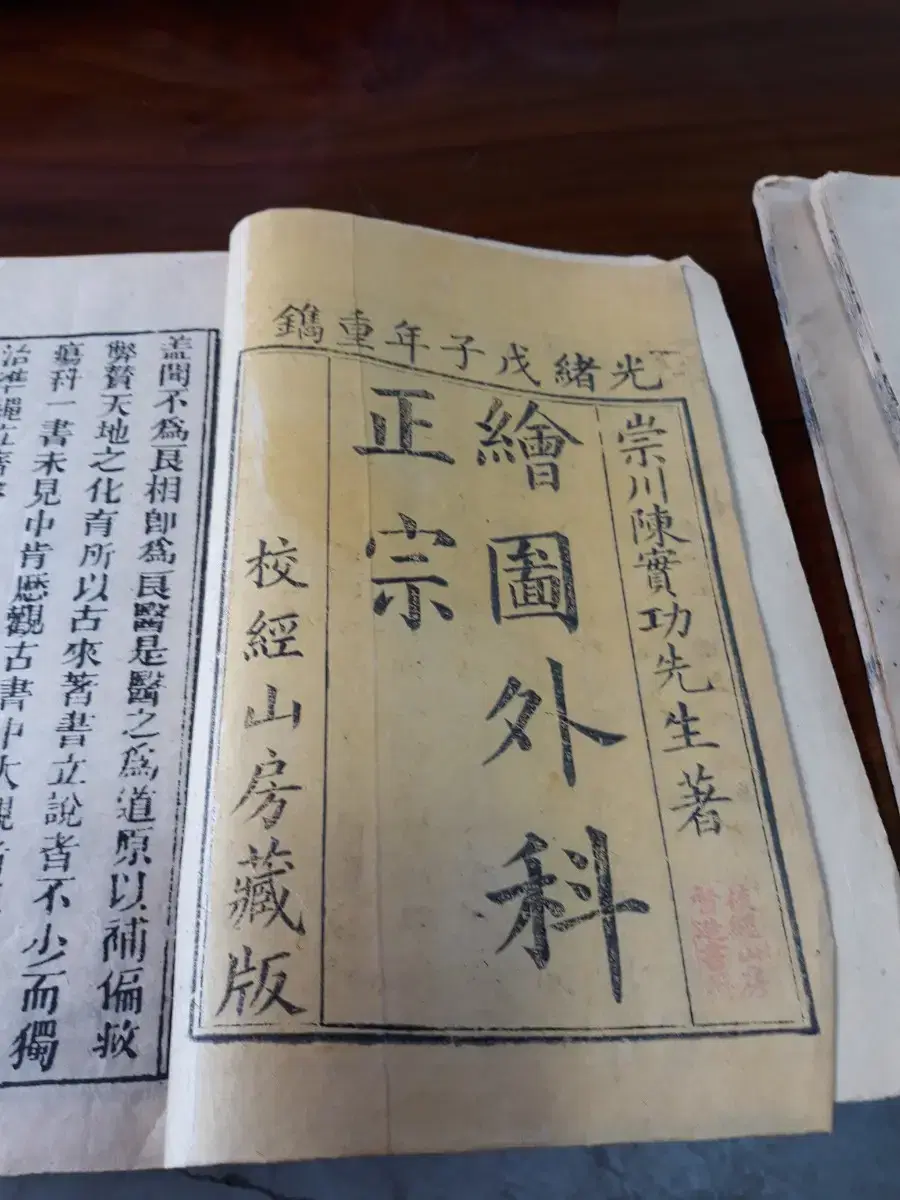 光緒戊子年重鐫
崇川陳實功先生著
繪圖外科
正宗
校經山房藏版
蓋聞不爲良相卽爲良醫是醫之爲道原以補偏救
弊贊天地之化育所以古來著書立說者不少而獨
瘍科一書未見中肯歷觀古書中大觀者
治準繩